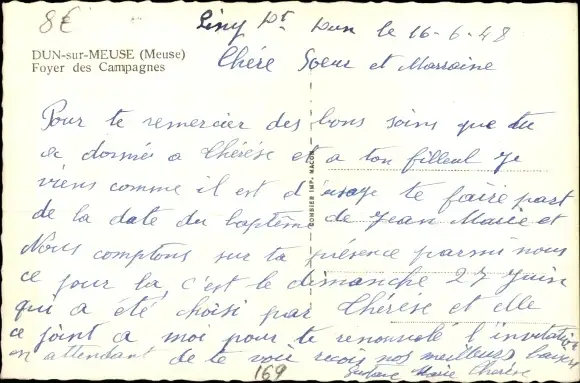 8€
Liny Dt Dun le 16-6-48
DUN-sur-MEUSE (Meuse)
Foyer des Campagnes
Chére Soeur et Marraine
Pour te remercier des bons soins que tu
a donnés a Thérése et a ton filleul Je
viens comme il est d'usage te faire part
de la date du baptême de Jean Marie et
Nous comptons sur ta présence parmi nous
ce jour la, c'est le dimanche 27 Juin
qui a été choisi par Thérèse et elle
ce joint a moi pour te renouvelé l'invitation
en attendant de te voir reçois nos meilleurs baisers
Gustave Marie Thérèse
COMBIER IMP. MACON
169